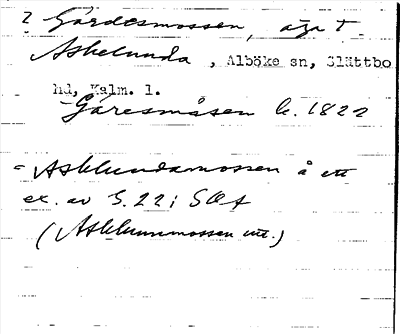 ? Gärdesmossen, äga t.
Askelunda, Alböke sn, Slättbo
hd, Kalm. l.
Gåresmåsen k. 1822
= Asklundamossen å ett
ex. av S. 22 i SOA
(Asklunnmossen utt.)